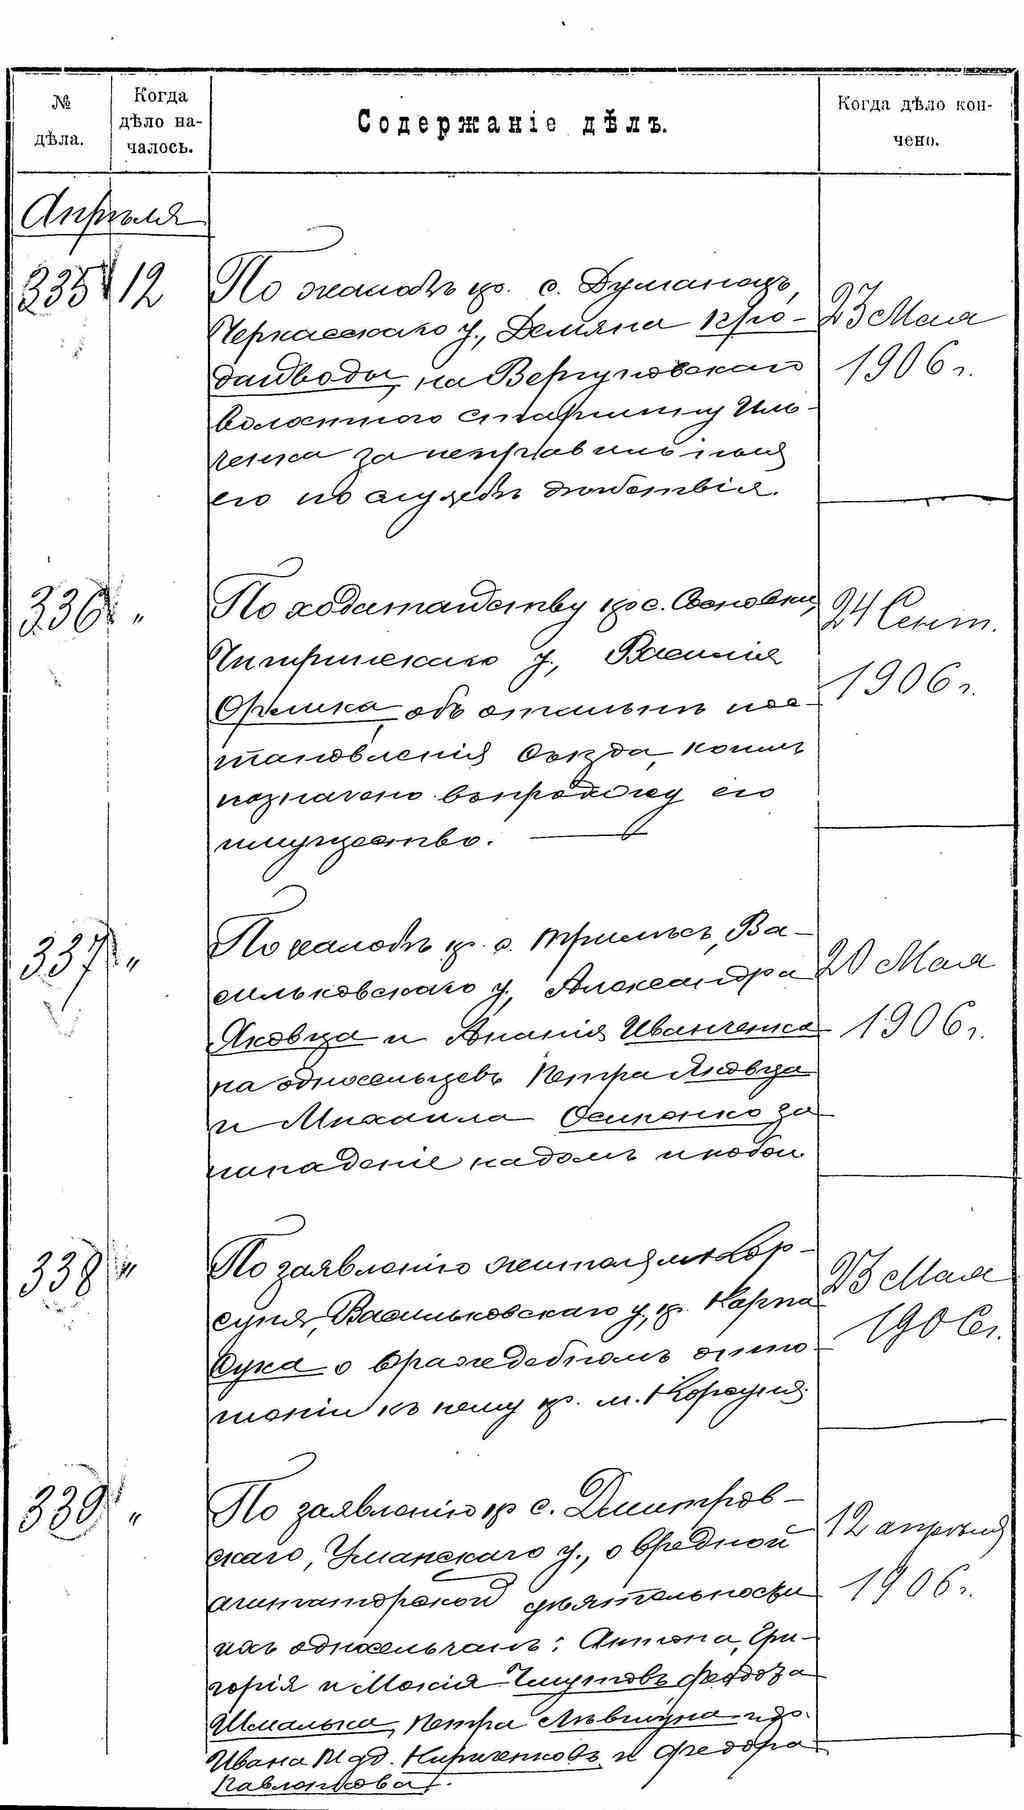 № дѣла.
Когда дѣло на-
чалось.
Содержаніе дѣлъ.
Когда дѣло кон-
чено.
Апрѣля
335 12
По жалобѣ кр. с. Думанецъ,
Черкасскаго у., Демьяна Кро-
на Вергуновскаго
волостного старшину Иль-
ченка за неправильныя
его по службѣ дѣйствія.
23 Мая
1906 г.
336 "
По ходатайству кр. с. Сосновки,
Чигиринскаго у., Василія
Орлика, объ отмѣнѣ пос-
тановленія Съѣзда, коимъ
назначено въ продажу его
имущество.
24 Сент.
1906 г.
337 "
По жалобѣ кр. с. Трилѣсъ, Ва-
сильковскаго у., Александра
Яковца и Ананія Иванченка
на односельцевъ Петра Яковца
и Михаила Осипенко за
нападеніе на домъ и побои.
20 Мая
1906 г.
338 "
По заявленію жителя м. Кор-
суня, Васильковскаго у., кр. Карпа
Сука о враждебномъ отно-
шеніи къ нему кр. м. Корсуня.
23 Мая
1906 г.
339 "
По заявленію кр. с. Дмитров-
скаго, Уманскаго у., о вредной
агитаторской дѣятельности
ихъ односельчанъ: Антона, Гри-
горія и Мокія Феодоза
Шмалька, Петра
Ивана Кириченковъ и Федора
Павленкова.
12 апрѣля
1906 г.